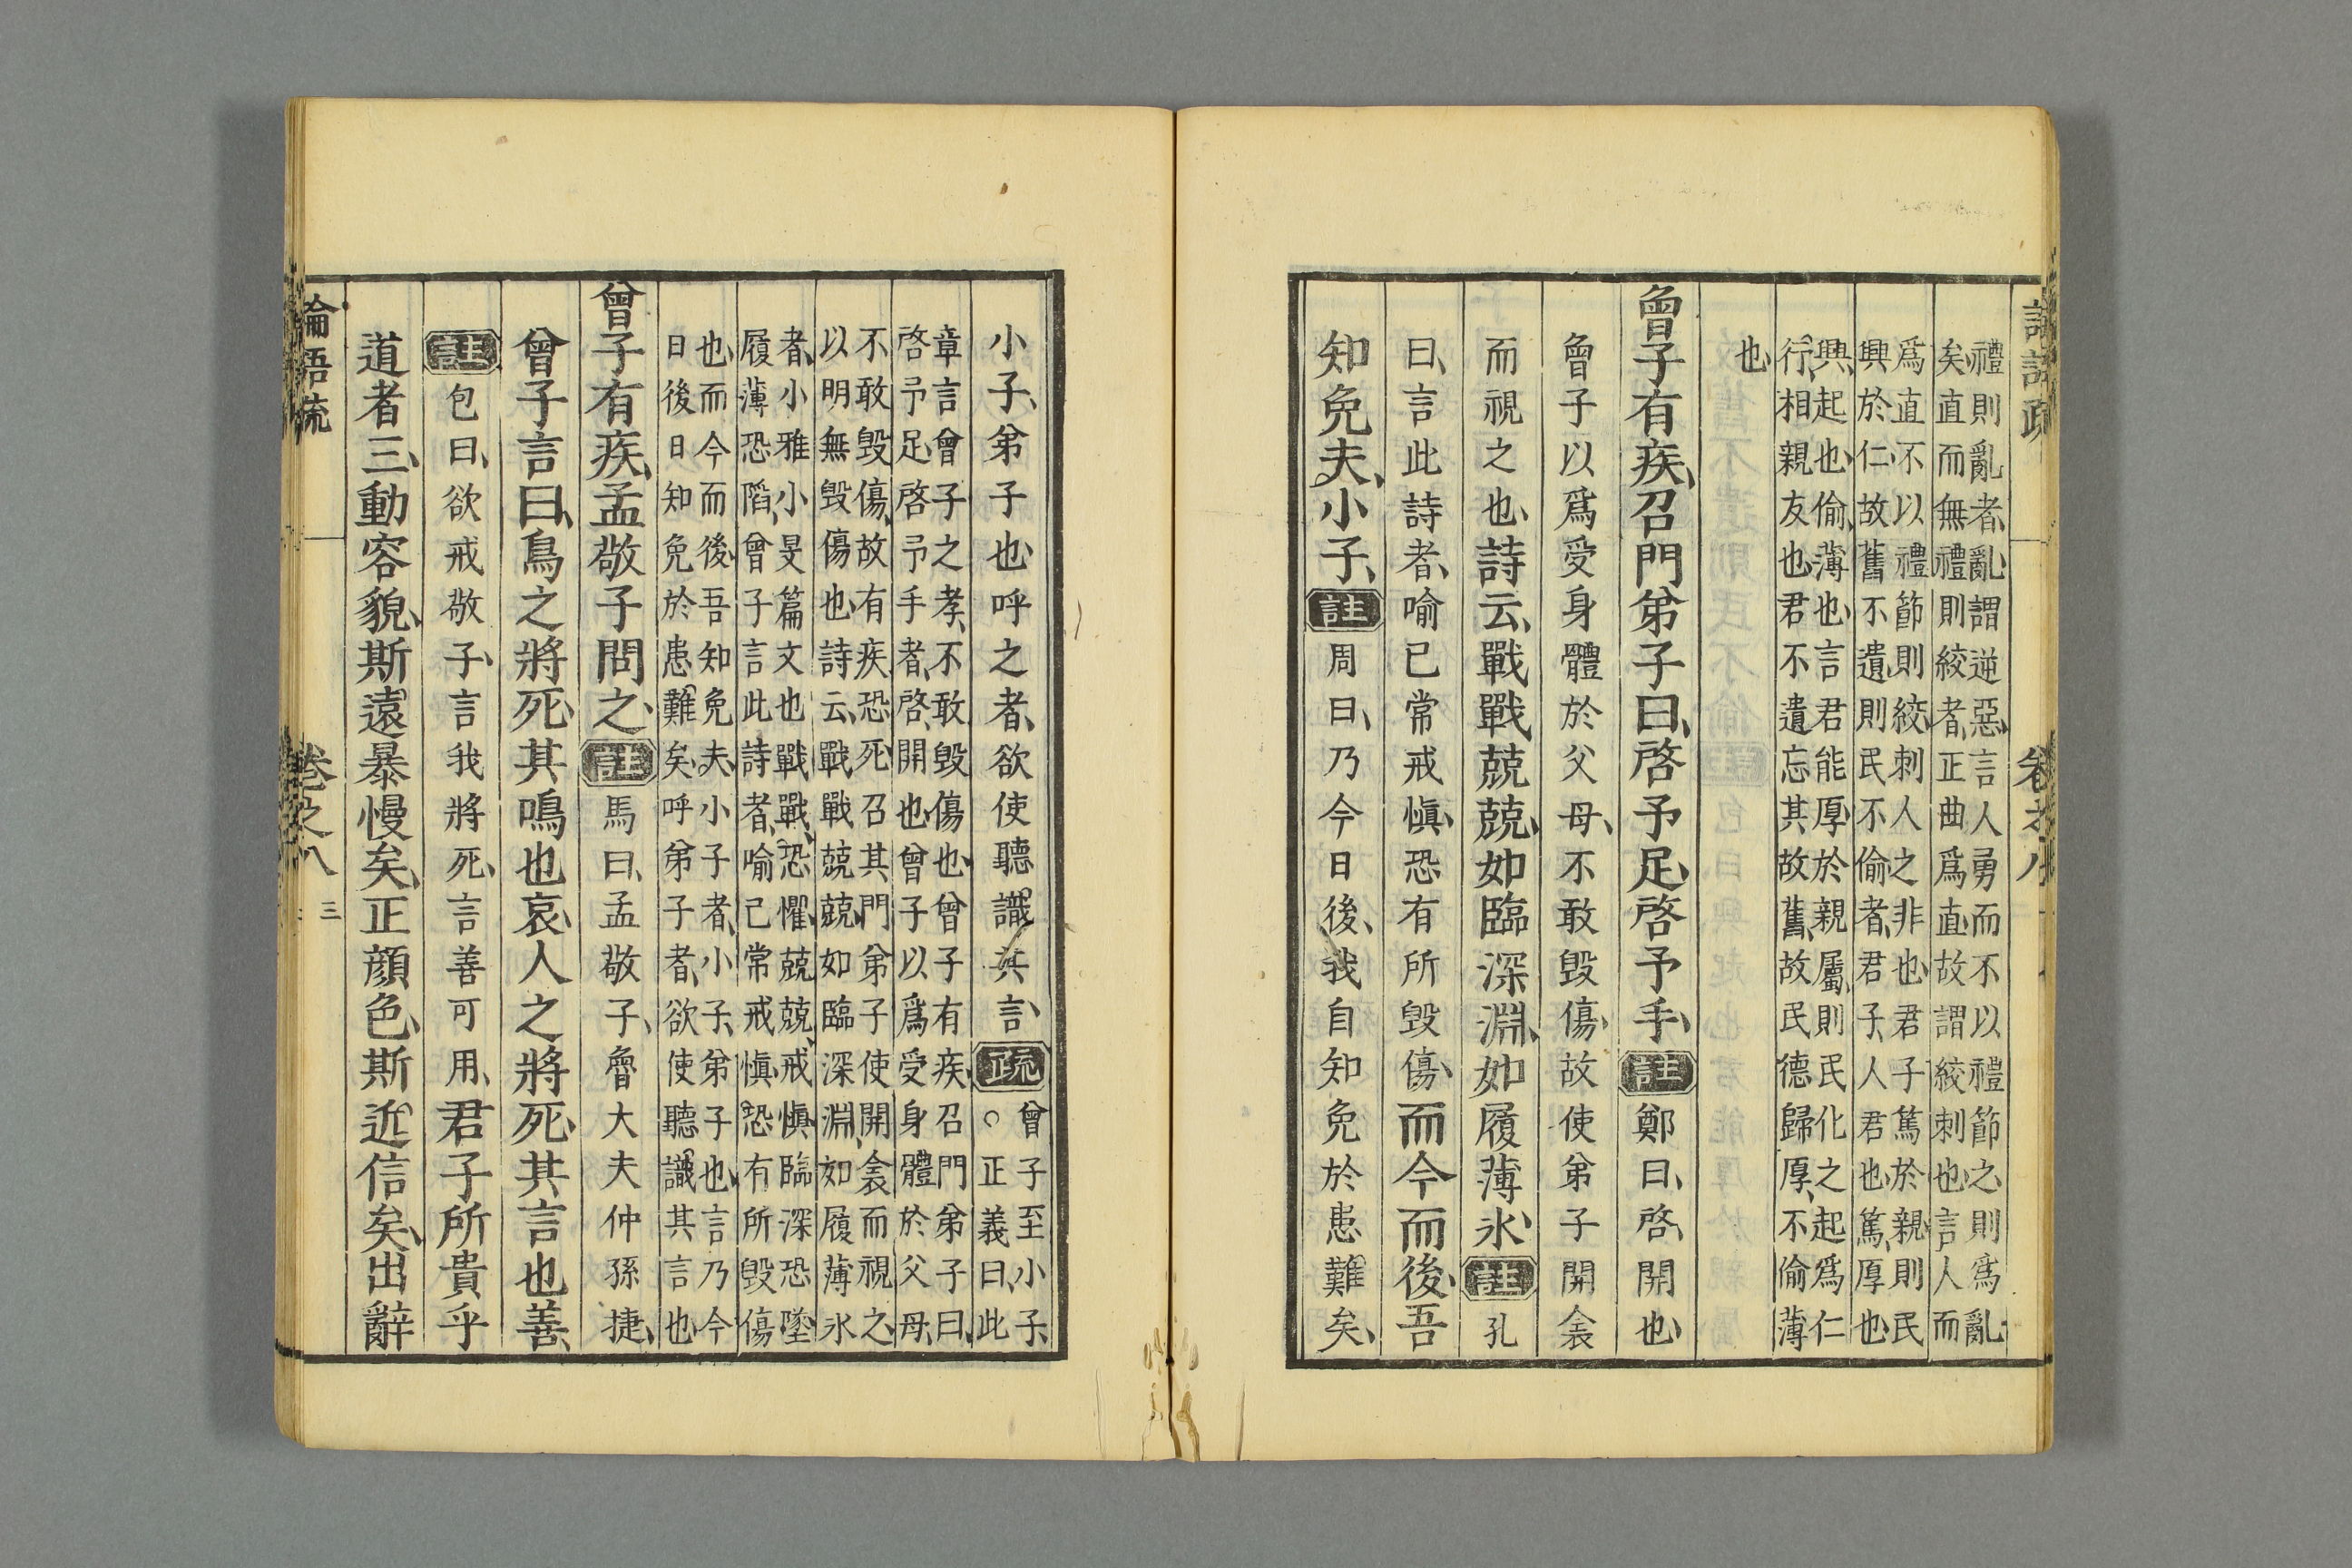 禮則亂者亂謂逆惡言人勇而不以禮節之則爲亂
矣直而無禮則絞者正曲爲直故謂絞刺也言人而
爲直不以禮節則絞刺人之非也君子篤於親則民
興於仁故舊不遺則民不偷者君子人君也篤厚也
興起也偷薄也言君能厚於親屬則民化之起爲仁
行相親友也君不遺忘其故舊故民德歸厚不偷薄
也
曾子有疾召門弟子曰啓予足啓予手註鄭曰啓開也
曾子以爲受身體於父母不敢毀傷故使弟子開衾
而視之也詩云戰戰兢兢如臨深淵如履薄氷註孔
曰言此詩者喻已常戒愼恐有所毀傷而今而後吾
知免夫小子註周曰乃今日後我自知免於患難矣
小子弟子也呼之者欲使聽識其言疏曾子至小子
○正義曰此
章言曾子之孝不敢毀傷也曾子有疾召門弟子曰
啓予足啓予手者啓開也曾子以爲受身體於父母
不敢毀傷故有疾恐死召其門弟子使開衾而視之
以明無毀傷也詩云戰戰兢兢如臨深淵如履薄氷
者小雅小旻篇文也戰戰恐懼兢兢戒愼臨深恐墜
履薄恐陷曾子言此詩者喻已常戒愼恐有所毀傷
也而今而後吾知免夫小子者小子弟子也言乃今
日後日知免於患難矣呼弟子者欲使聽識其言也
曾子有疾孟敬子問之註馬曰孟敬子魯大夫仲孫捷
曾子言曰鳥之將死其鳴也哀人之將死其言也善
註包曰欲戒敬子言我將死言善可用君子所貴乎
道者三動容貌斯遠暴慢矣正顔色斯近信矣出辭
論語疏 卷之八 三